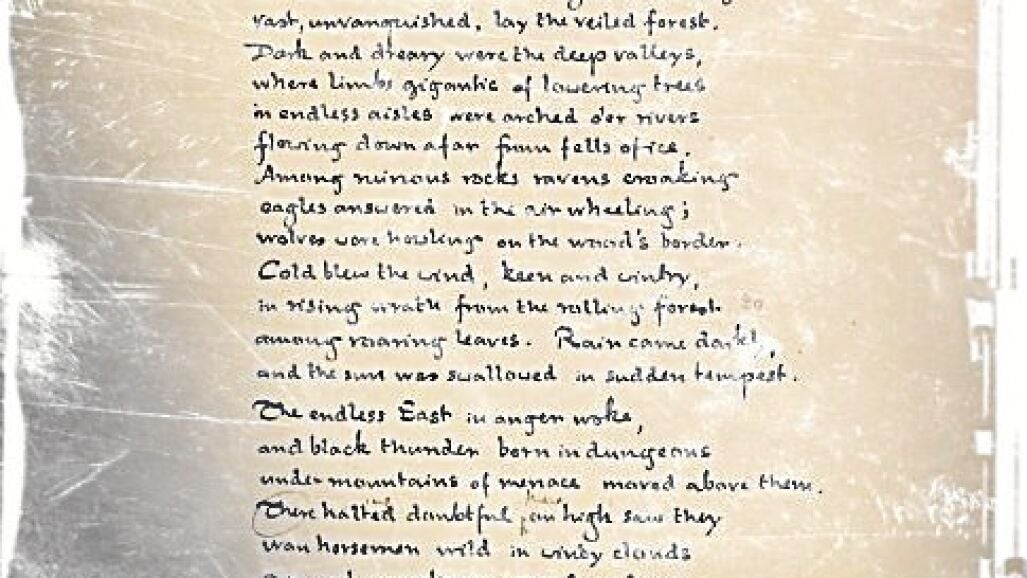 vast, unvanquished, lay the veiled forest.
Dark and dreary were the deep valleys,
where limbs gigantic of lowering trees
in endless aisles were arched o'er rivers
flowing down afar from fells of ice.
Among ruinous rocks ravens croaking
eagles answered in the air wheeling;
wolves were howling on the wood's border.
Cold blew the wind, keen and wintry,
in rising wrath from the rolling forest
among roaring leaves. Rain came darkly,
and the sun was swallowed in sudden tempest.
The endless East in anger woke,
and black thunder born in dungeons
under mountains of menace moved above them.
There halted doubtful, on high saw they
wan horsemen wild in windy clouds